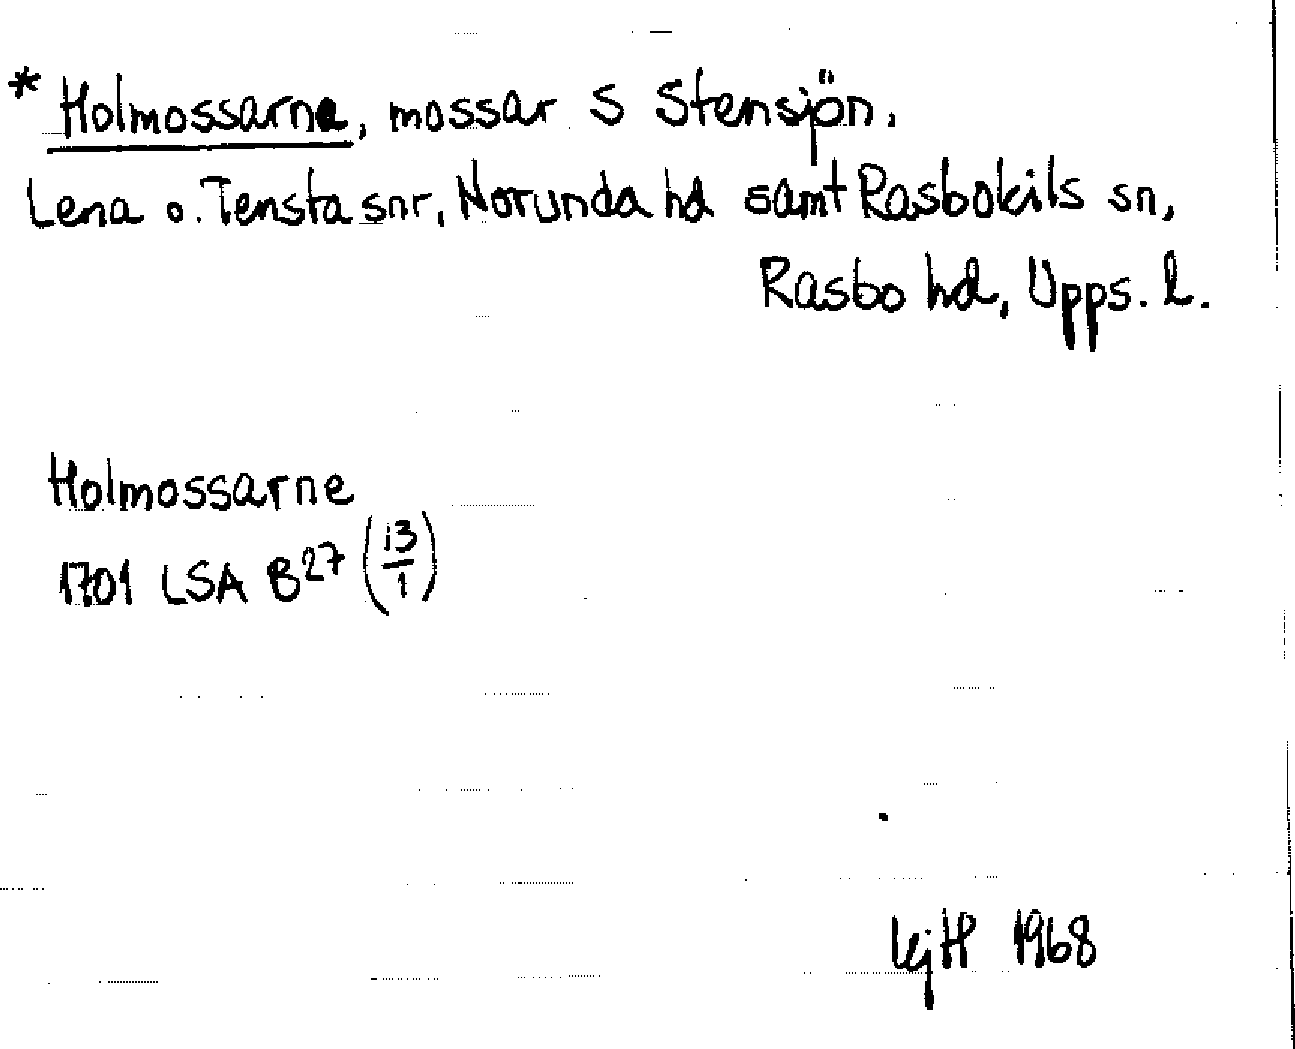 * Holmossarne, mossar S Stensjön.
Lena o. Tensta snr, Norunda hd samt Rasbokils sn,
Rasbo hd, Upps. l.
Holmossarne
1701 LSA B27 (13/1)
KjHP 1968